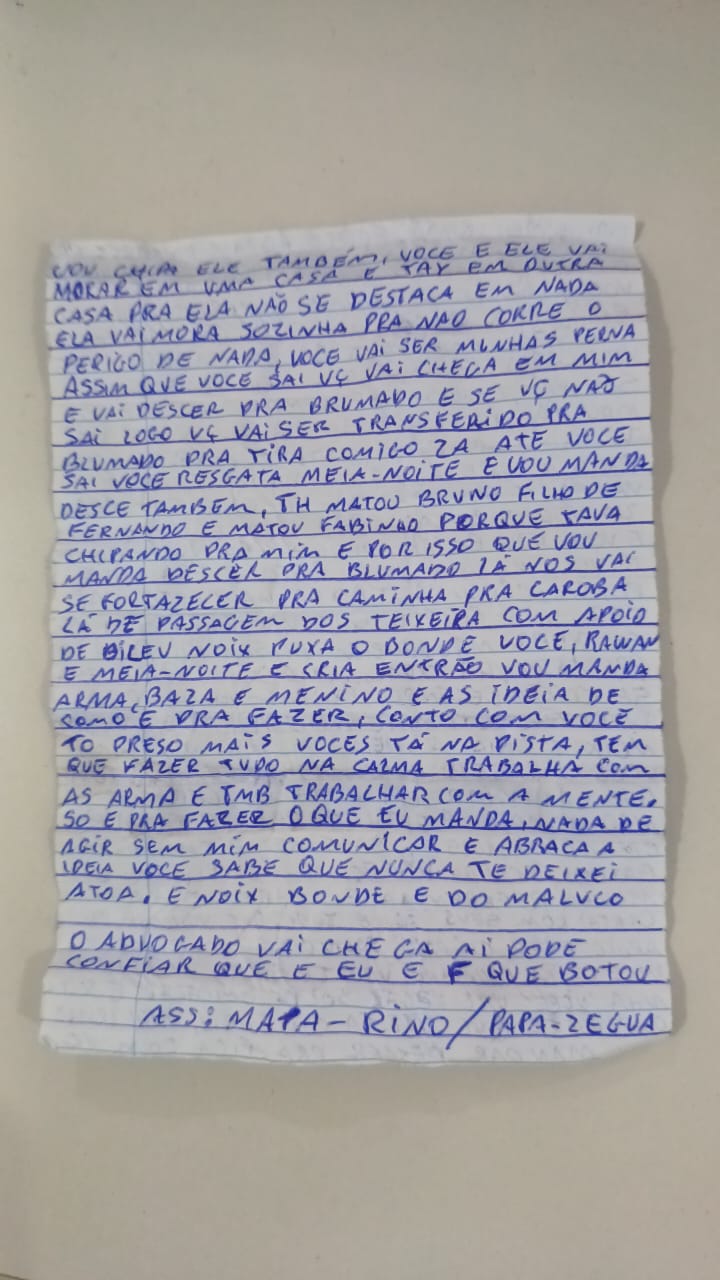 VOU CHIPA ELE TAMBÉM, VOCE E ELE VAI
MORAR EM UMA CASA E TAY EM OUTRA
CASA PRA ELA NÃO SE DESTACA EM NADA
ELA VAI MORA SOZINHA PRA NAO CORRE O
PERIGO DE NADA, VOCE VAI SER MINHAS PERNA
ASSIM QUE VOCE SAI VÇ VAI CHEGA EM MIM
E VAI DESCER PRA BRUMADO E SE VÇ NAO
SAI LOGO VÇ VAI SER TRANSFERIDO PRA
BLUMADO PRA TIRA COMIGO LA ATÉ VOCE
SAI VOCE RESGATA MEIA-NOITE E VOU MANDA
DESCE TAMBEM, TH MATOU BRUNO FILHO DE
FERNANDO E MATOU FABINHO PORQUE TAVA
CHIPANDO PRA MIM E POR ISSO QUE VOU
MANDA DESCER PRA BLUMADO LÁ NOS VAI
SE FORTALECER PRA CAMINHA PRA CAROBA
LÁ DE PASSAGEM DOS TEIXEIRA COM APOIO
DE DILEU NOIX PUXA O BONDE VOCE, RAWAN
E MEIA-NOITE E CRIA ENTRÃO VOU MANDA
ARMA, BALA E MENINO E AS IDEIA DE
COMO É PRA FAZER, CONTO COM VOCÊ
TO PRESO MAIS VOCES TÁ NA PISTA, TEM
QUE FAZER TUDO NA CALMA TRABALHA COM
AS ARMA E TMB TRABALHAR COM A MENTE.
SO É PRA FAZER O QUE EU MANDA, NADA DE
AGIR SEM MIM COMUNICAR E ABRACA A
IDEIA VOCE SABE QUE NUNCA TE DEIXEI
ATOA. E NOIX BONDE E DO MALUCO
O ADVOGADO VAI CHEGA AI PODE
CONFIAR QUE E EU E F QUE BOTOU
ASS: MATA-RINO/PAPA-LEGUA